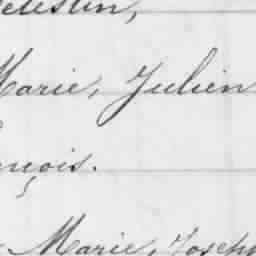 Célestin,
Marie, Julien
nçois.
Marie, Joseph